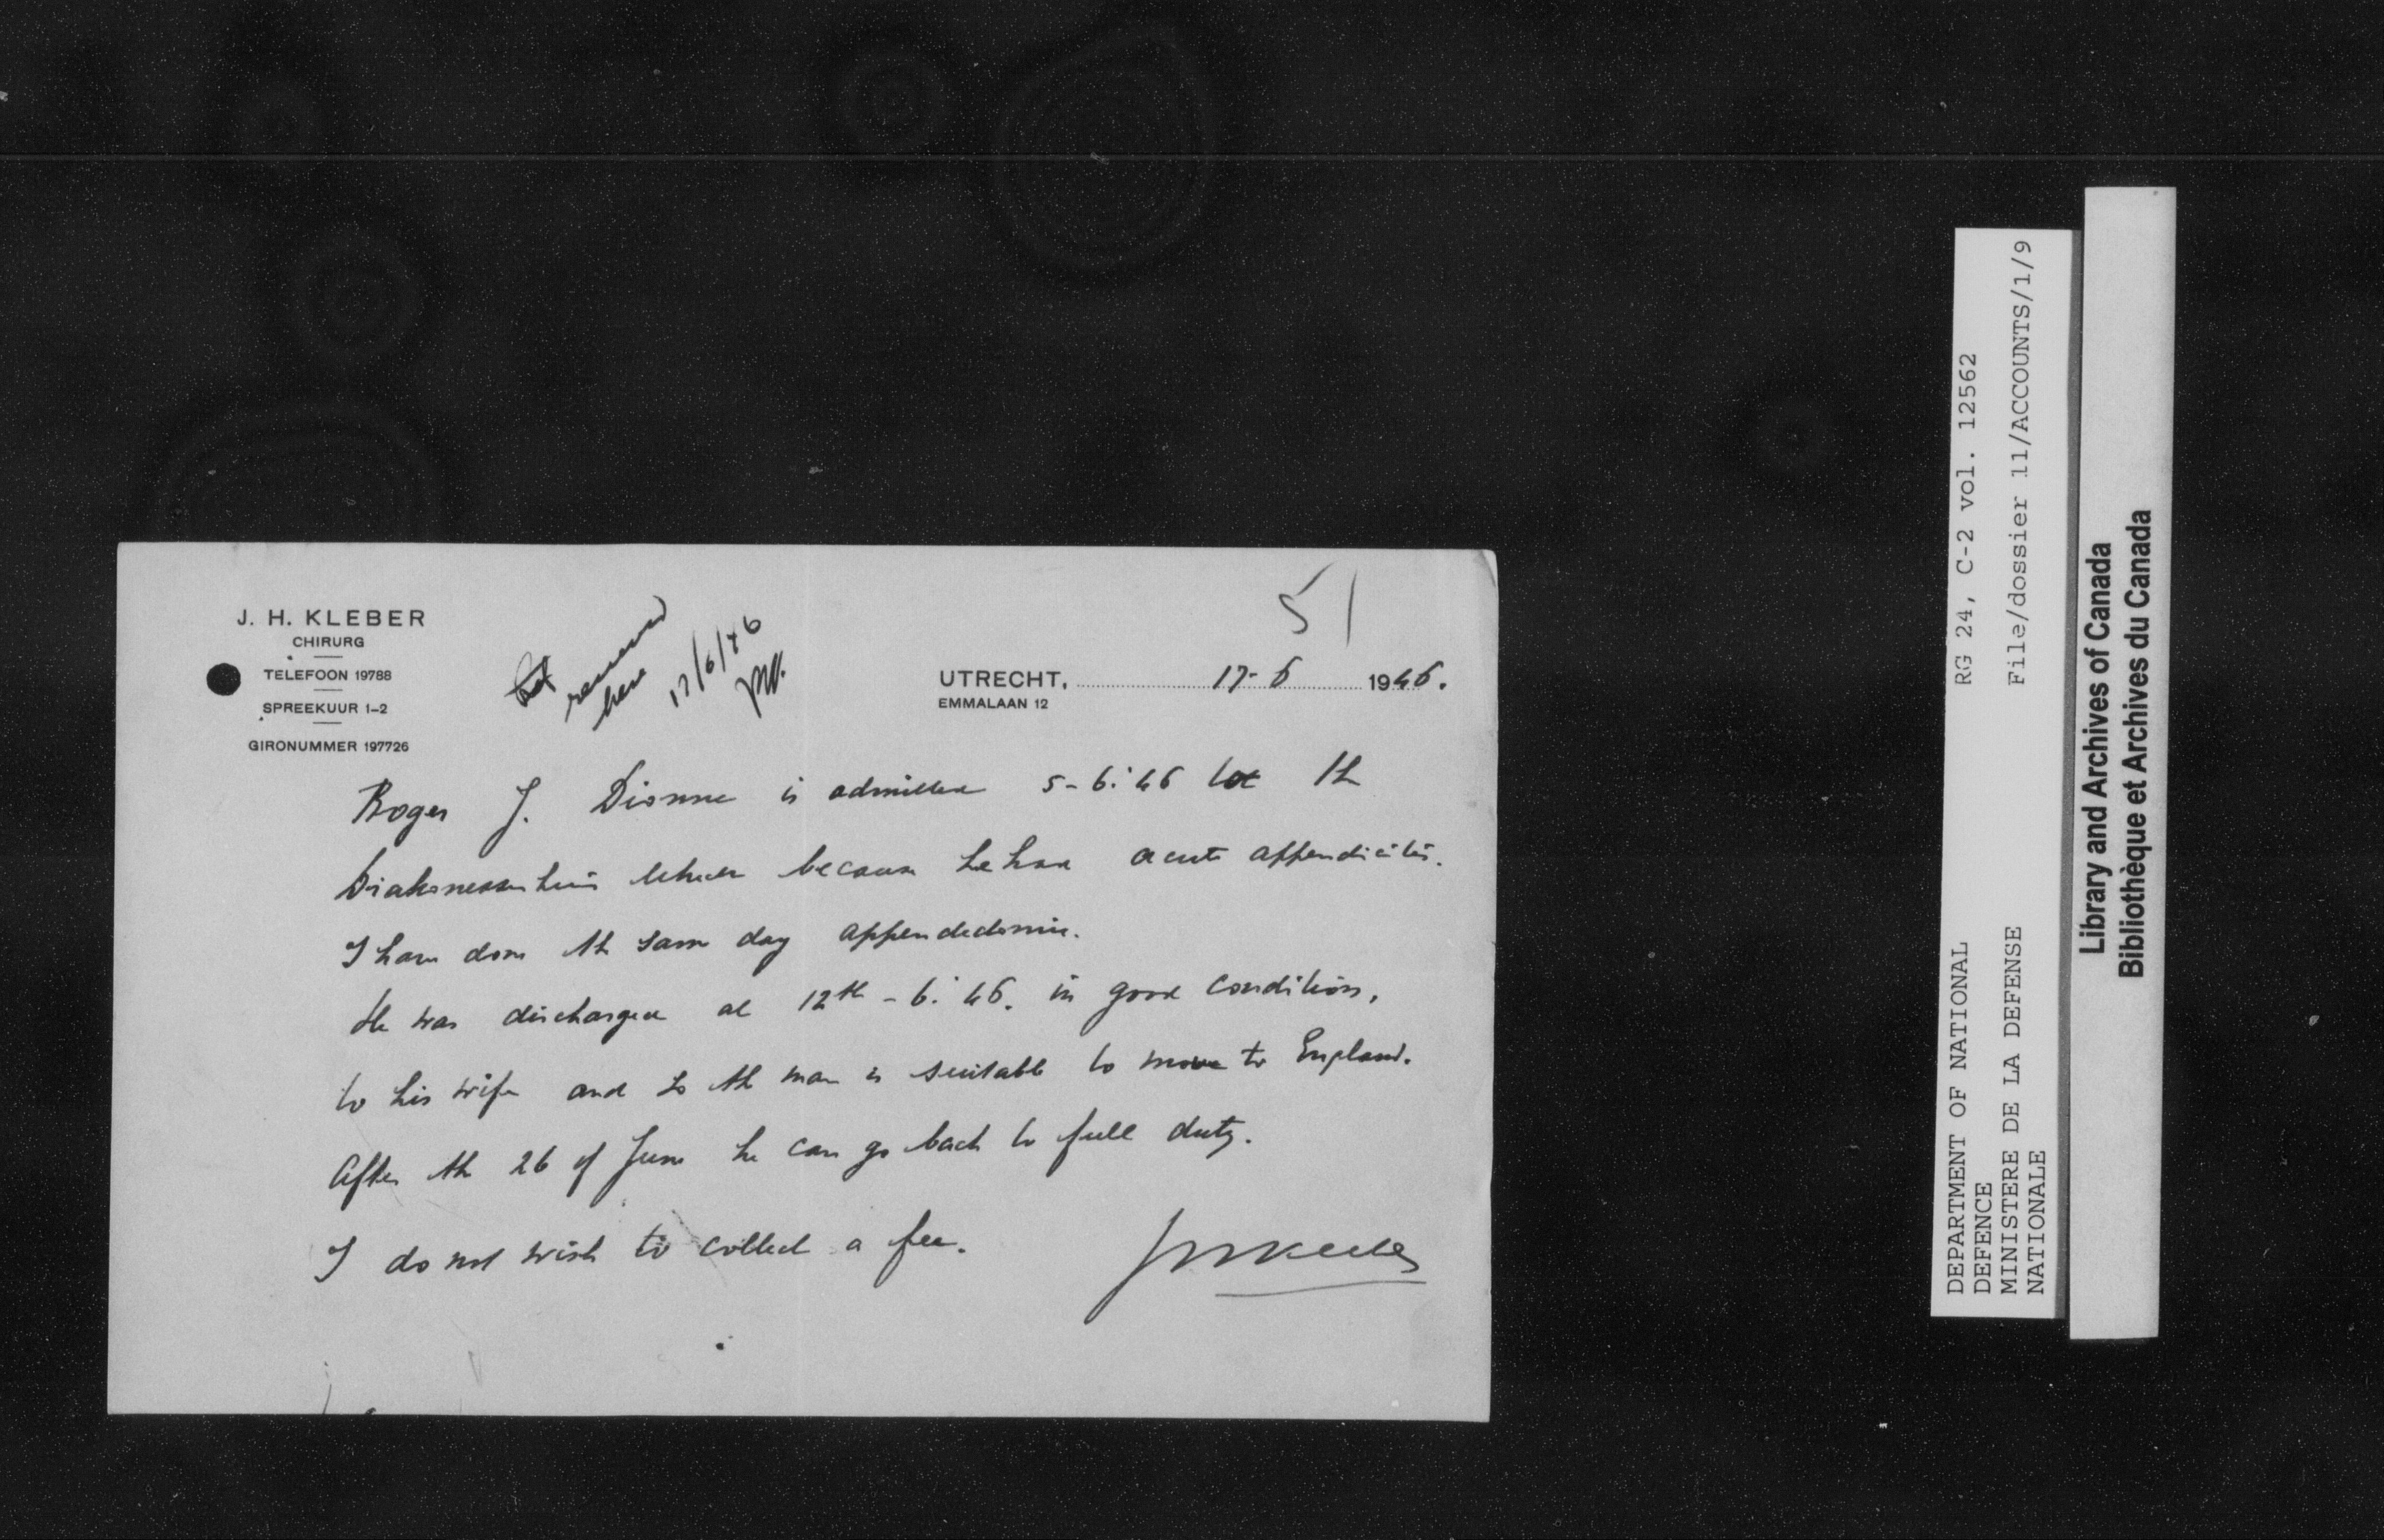 J. H. KLEBER
CHIRURG
TELEFOON 19788
SPREEKUUR 1–2
GIRONUMMER 197726
received
here
17/6/46
51
UTRECHT, 17-6 1946.
EMMALAAN 12
Roger J. Dionne is admitted 5-6-'46 tot the
Diakonessenhuis Utrecht because he had acute appendicitis.
I have done the same day appendectomie.
He was discharged at 12th-6-'46. in good condition,
to his wife and so the man is suitable to move to England.
After the 26 of June he can go back to full duty.
I do not wish to collect a fee.
JHKleber
RG 24, C-2 vol. 12562
File/dossier 11/ACCOUNTS/1/9
DEPARTMENT OF NATIONAL
DEFENCE
MINISTERE DE LA DEFENSE
NATIONALE
Library and Archives of Canada
Bibliothèque et Archives du Canada